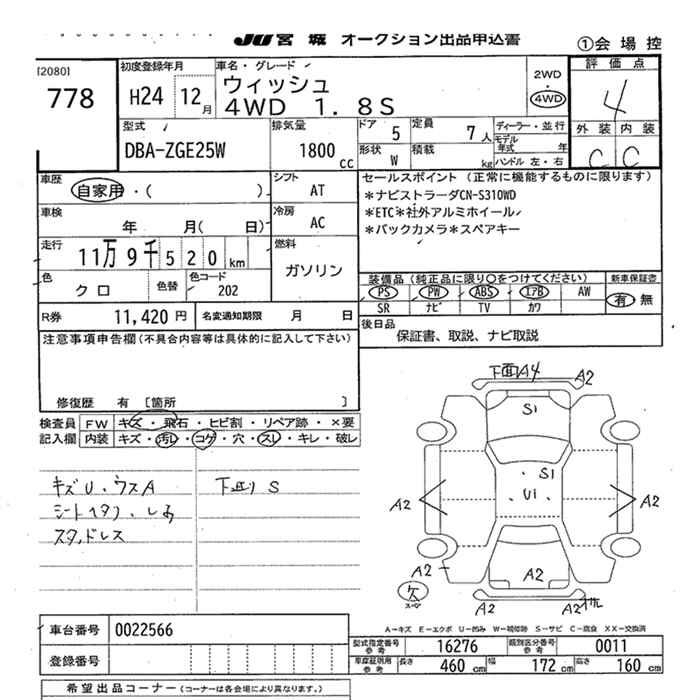 JU 宮城 オークション出品申込書
①会場控
[2080]
778
初度登録年月
H24 12月
車名・グレード
ウィッシュ
4WD 1.8S
2WD
・
4WD
評価点
4
外装 内装
C C
型式
DBA-ZGE25W
排気量
1800cc
ドア 5
定員 7人
形状 W
積載 kg
ディーラー・並行
モデル年式 年
ハンドル 左・右
車歴
自家用・( )
シフト AT
車検
年 月( 日)
冷房 AC
走行
11万9千520km
燃料 ガソリン
色 クロ
色替
色コード 202
R券 11,420円
名変通知期限 月 日
セールスポイント (正常に機能するものに限ります)
*ナビストラーダCN-S310WD
*ETC*社外アルミホイール
*バックカメラ*スペアキー
装備品(純正品に限り○をつけてください)
新車保証書
PS PW ABS エアB AW
有・無
SR ナビ TV カワ
後日品
保証書、取説、ナビ取説
注意事項申告欄(不具合内容等は具体的に記入して下さい)
修復歴 有 [箇所 ]
検査員記入欄
FW キズ・飛石・ヒビ割・リペア跡・×要
内装 キズ・汚レ・コゲ・穴・スレ・キレ・破レ
キズU.ウスA
下廻りS
シートヘタリ.しみ
スタッドレス
下面A4
A2
S1
S1
U1
A2
A2
A2
A2
A2
A2
欠
A-キズ E-エクボ U-凹み W-補修跡 S-サビ C-腐食 XX-交換済
車台番号 0022566
登録番号
型式指定番号参考 16276
類別区分番号参考 0011
車庫証明用参考 長さ 460cm 幅 172cm 高さ 160cm
希望出品コーナー(コーナーは各会場により異なります。)